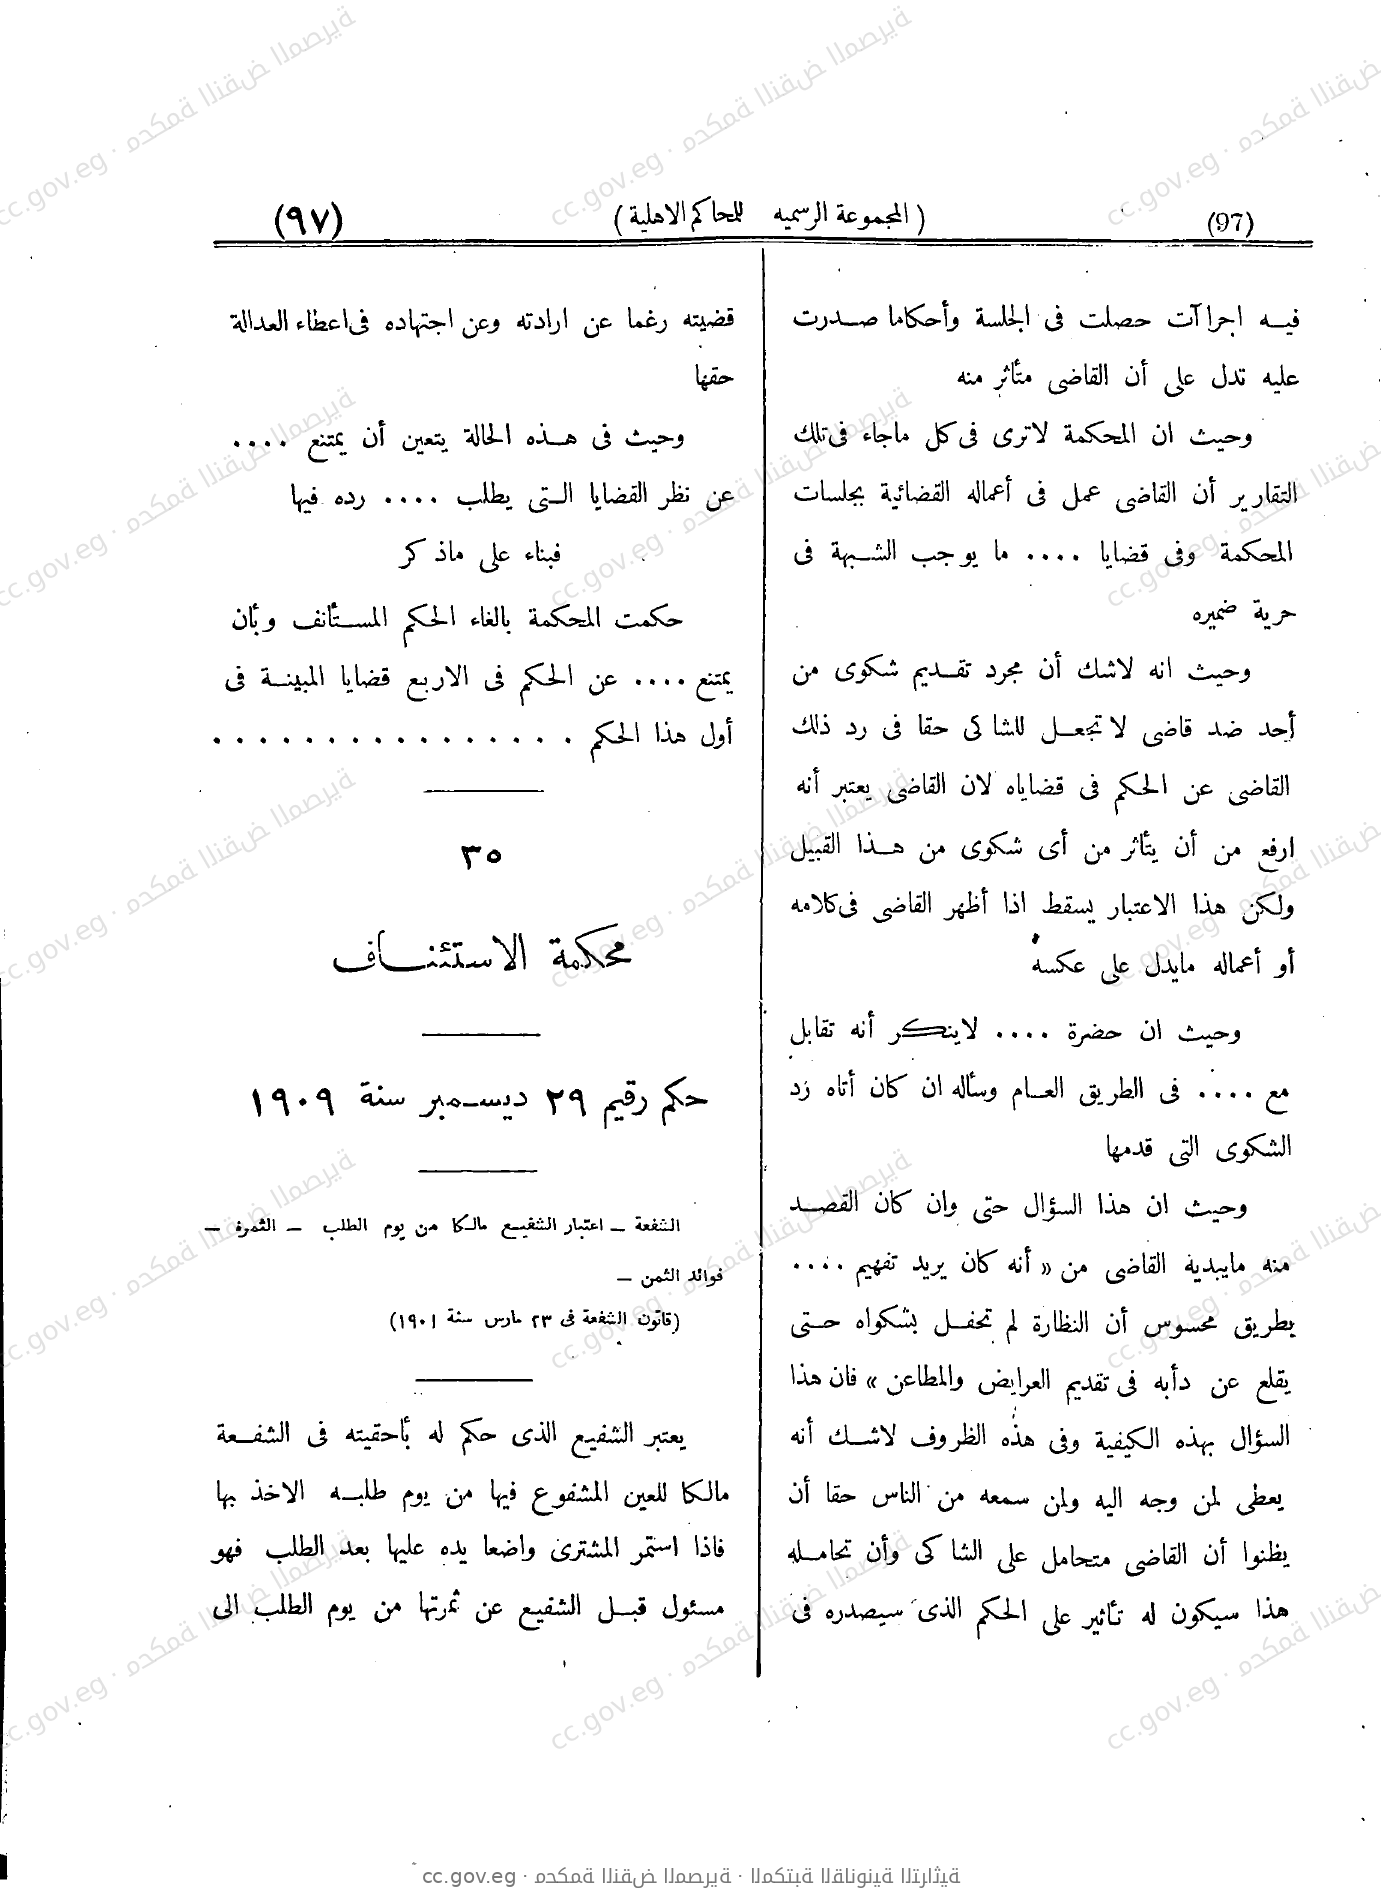 (97) ( المجموعة الرسميه للمحاكم الاهلية ) (٩٧)
فيه اجراآت حصلت فى الجلسة وأحكاما صدرت
عليه تدل على أن القاضى متأثر منه
وحيث ان المحكمة لاترى فى كل ماجاء فى تلك
التقارير أن القاضى عمل فى أعماله القضائية بجلسات
المحكمة وفى قضايا .... ما يوجب الشبهة فى
حرية ضميره
وحيث انه لاشك أن مجرد تقديم شكوى من
أحد ضد قاضى لا تجعل للشاكى حقا فى رد ذلك
القاضى عن الحكم فى قضاياه لان القاضى يعتبر أنه
ارفع من أن يتأثر من أى شكوى من هذا القبيل
ولكن هذا الاعتبار يسقط اذا أظهر القاضى فى كلامه
أو أعماله مايدل على عكسه
وحيث ان حضرة .... لاينكر أنه تقابل
مع .... فى الطريق العام وسأله ان كان أتاه رد
الشكوى التى قدمها
وحيث ان هذا السؤال حتى وان كان القصد
منه مايبديه القاضى من « أنه كان يريد تفهيم ....
بطريق محسوس أن النظارة لم تحفل بشكواه حتى
يقلع عن دأبه فى تقديم العرايض والمطاعن » فان هذا
السؤال بهذه الكيفية وفى هذه الظروف لاشك أنه
يعطى لمن وجه اليه ولمن سمعه من الناس حقا أن
يظنوا أن القاضى متحامل على الشاكى وأن تحامله
هذا سيكون له تأثير على الحكم الذى سيصدره فى
قضيته رغما عن ارادته وعن اجتهاده فى اعطاء العدالة
حقها
وحيث فى هذه الحالة يتعين أن يمتنع ....
عن نظر القضايا التى يطلب .... رده فيها
فبناء على ماذكر
حكمت المحكمة بالغاء الحكم المستأنف وبأن
يمتنع .... عن الحكم فى الاربع قضايا المبينة فى
أول هذا الحكم . . . . . . . . . . . . . . . .
٣٥
محكمة الاستئناف
حكم رقيم ٢٩ ديسمبر سنة ١٩٠٩
الشفعة – اعتبار الشفيع مالكا من يوم الطلب – الثمرة –
فوائد الثمن –
(قانون الشفعة فى ٢٣ مارس سنة ١٩٠١)
يعتبر الشفيع الذى حكم له بأحقيته فى الشفعة
مالكا للعين المشفوع فيها من يوم طلبه الاخذ بها
فاذا استمر المشترى واضعا يده عليها بعد الطلب فهو
مسئول قبل الشفيع عن ثمرتها من يوم الطلب الى
cc.gov.eg · محكمة النقض المصرية · المكتبة القانونية التراثية